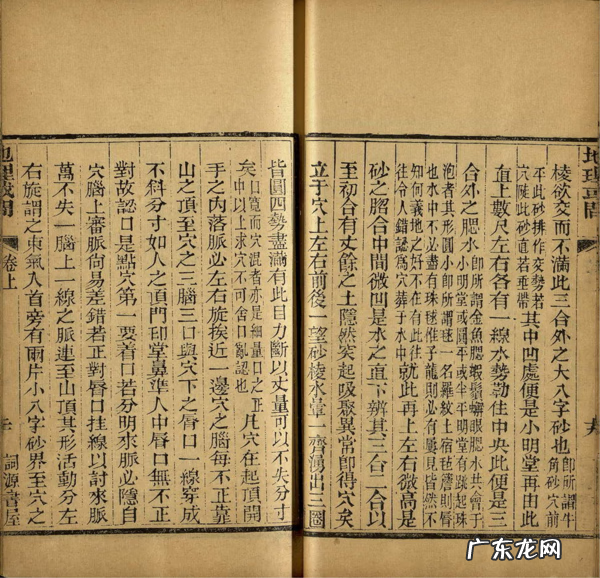 地理或問
棱欲交而不滿此三合外之大八字砂也即所謂牛角砂穴前
平此砂排作交勢若穴陡此砂直若垂帶其中凹處便是小明堂再由此
直上數尺左右各有一線水勢勒住中央此便是三
合外之腮水卽所謂金魚腮蝦鬚蟹眼腮水共會于小明堂或圓平或半平明堂有跌起珠
泡者其形圓小卽所謂珏一名羅紋土宿毬濤則脣也水中不必盡有珠毬惟子龍則必有屢見皆然不
知何義地之好不在有此往往令人錯認爲穴葬于水中就此再上左右微高是
砂之腽合中間微凹是水之直下辨其三合二合以
至初合有丈餘之土隱然突起吸聚異常卽得穴矣
立于穴上左右前後一望砂棱水暈一齊湧出三圈
皆圓四勢盡滿有此目力斷以丈量可以不失分寸
矣口寬而穴混者亦是細量口之正中以上求穴不可舍口亂認也凡穴在起頂開
手之內落脈必左右旋挨近一邊穴之腦每不正靠
山之頂至穴之三腦三口與穴下之脣口一線穿成
不斜分寸如人之頂門印堂鼻準人中脣口無不正
對故認口是點穴第一要着口若分明來脈必隱自
穴腦上審脈尙易差錯若正對脣口挂線以討來脈
萬不失一腦上一線之脈連至山頂其形活動分左
右旋謂之束氣入首旁有兩片小八字砂界至穴之
地理或問
卷上
詞源書屋
广东龙网